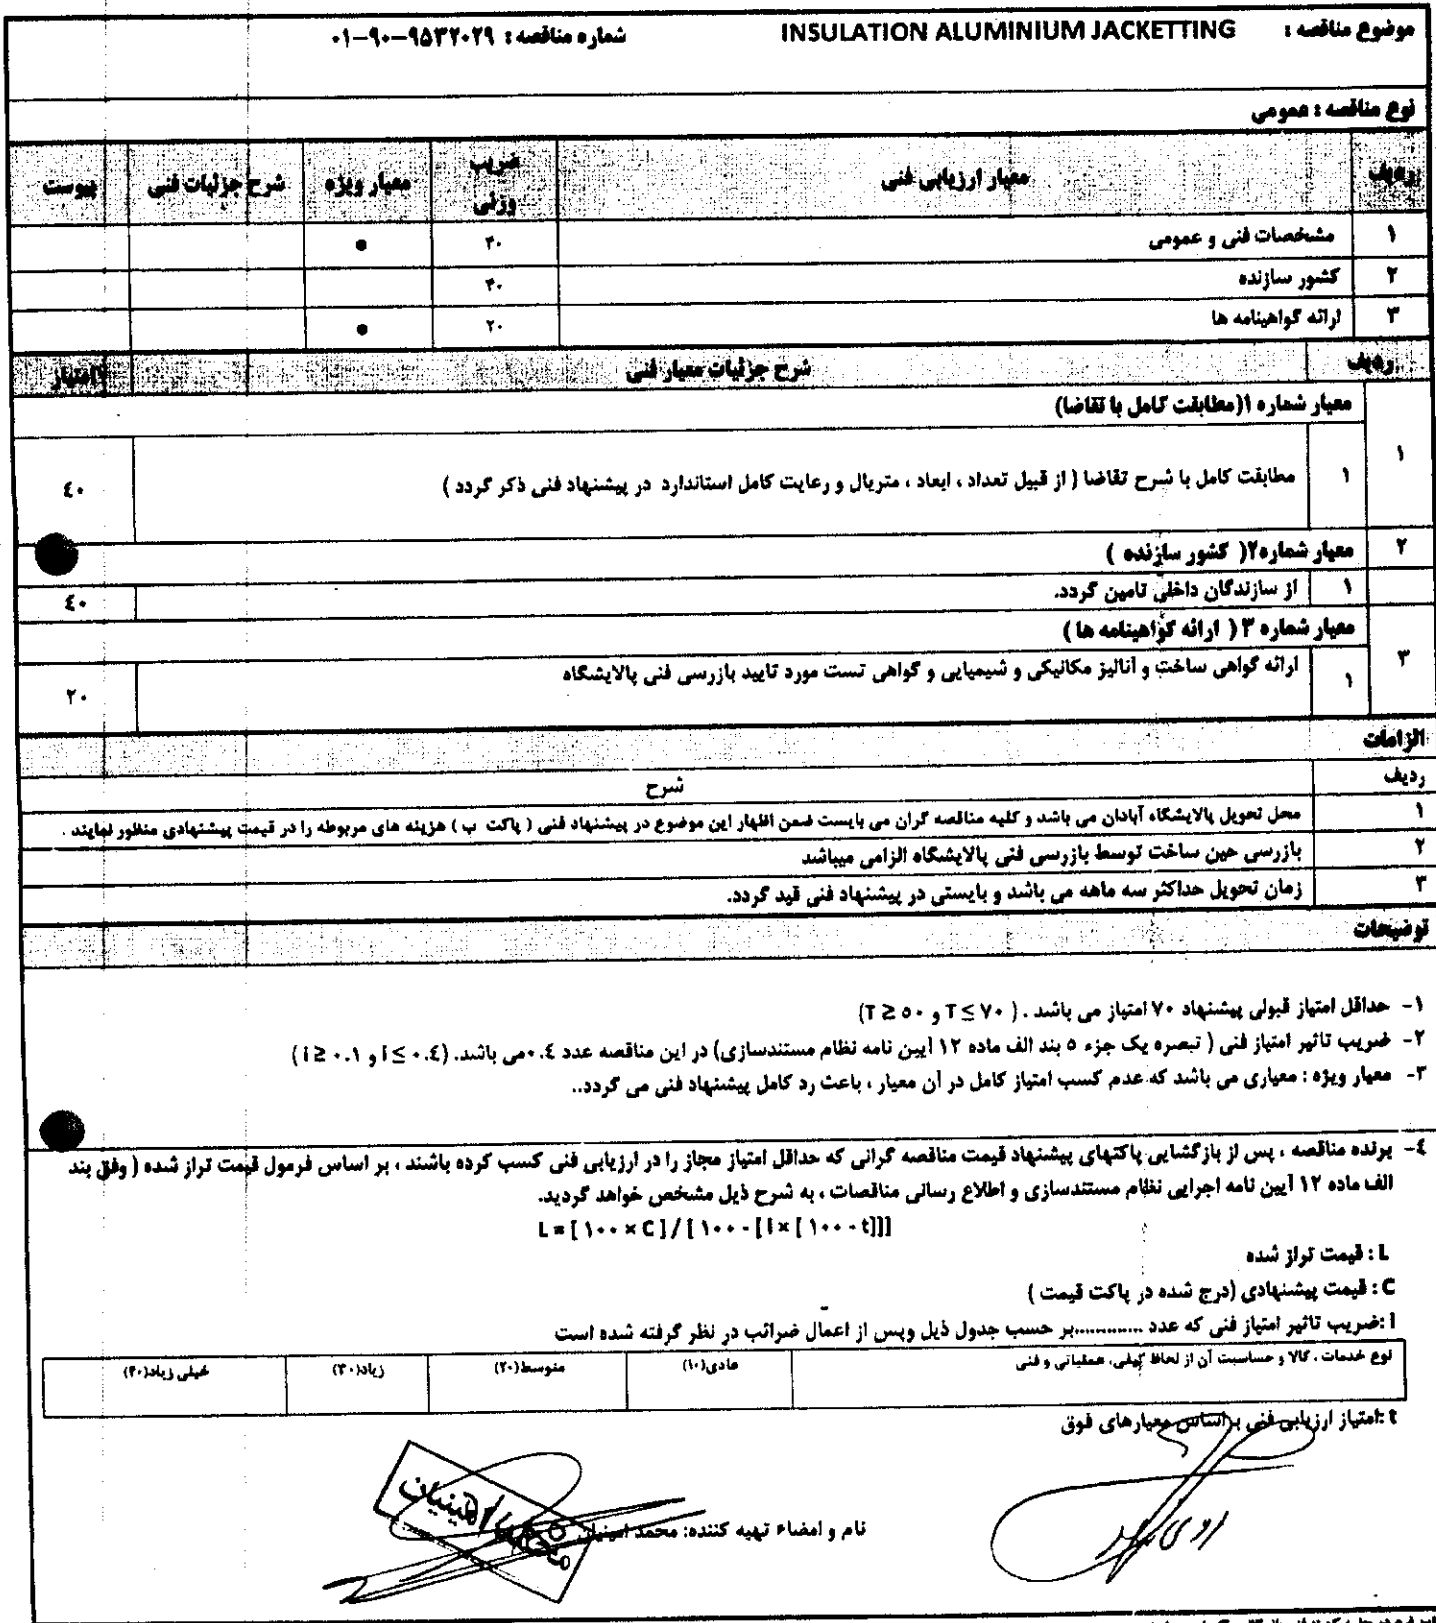 موضوع مناقصه : INSULATION ALUMINIUM JACKETTING شماره مناقصه : ۹۵۳۲۰۲۹-۹۰-۰۱
نوع مناقصه : عمومی
ردیف معیار ارزیابی فنی ضریب وزنی معیار ویژه شرح جزئیات فنی پیوست
۱ مشخصات فنی و عمومی ۴۰ ●
۲ کشور سازنده ۴۰
۳ ارائه گواهینامه ها ۲۰ ●
ردیف شرح جزئیات معیار فنی امتیاز
۱ معیار شماره ۱(مطابقت کامل با تقاضا)
۱ مطابقت کامل با شرح تقاضا ( از قبیل تعداد ، ابعاد ، متریال و رعایت کامل استاندارد در پیشنهاد فنی ذکر گردد ) ٤٠
۲ معیار شماره۲( کشور سازنده )
۱ از سازندگان داخلی تامین گردد. ٤٠
۳ معیار شماره ۳ ( ارائه گواهینامه ها )
۱ ارائه گواهی ساخت و آنالیز مکانیکی و شیمیایی و گواهی تست مورد تایید بازرسی فنی پالایشگاه ۲۰
الزامات
ردیف شرح
۱ محل تحویل پالایشگاه آبادان می باشد و کلیه مناقصه گران می بایست ضمن اظهار این موضوع در پیشنهاد فنی ( پاکت ب ) هزینه های مربوطه را در قیمت پیشنهادی منظور نمایند .
۲ بازرسی حین ساخت توسط بازرسی فنی پالایشگاه الزامی میباشد
۳ زمان تحویل حداکثر سه ماهه می باشد و بایستی در پیشنهاد فنی قید گردد.
توضیحات
۱- حداقل امتیاز قبولی پیشنهاد ۷۰ امتیاز می باشد . ( T ≤ ۷۰ و T ≥ ۵۰)
۲- ضریب تاثیر امتیاز فنی ( تبصره یک جزء ۵ بند الف ماده ۱۲ آیین نامه نظام مستندسازی) در این مناقصه عدد ۰.٤می باشد. (i ≤ ۰.٤ و i ≥ ۰.۱ )
۳- معیار ویژه : معیاری می باشد که عدم کسب امتیاز کامل در آن معیار ، باعث رد کامل پیشنهاد فنی می گردد..
٤- برنده مناقصه ، پس از بازگشایی پاکتهای پیشنهاد قیمت مناقصه گرانی که حداقل امتیاز مجاز را در ارزیابی فنی کسب کرده باشند ، بر اساس فرمول قیمت تراز شده ( وفق بند
الف ماده ۱۲ آیین نامه اجرایی نظام مستندسازی و اطلاع رسانی مناقصات ، به شرح ذیل مشخص خواهد گردید.
L = [ ۱۰۰ × C ] / [ ۱۰۰ - [ i × [ ۱۰۰ - t]]]
L : قیمت تراز شده
C : قیمت پیشنهادی (درج شده در پاکت قیمت )
i :ضریب تاثیر امتیاز فنی که عدد .............بر حسب جدول ذیل وپس از اعمال ضرائب در نظر گرفته شده است
نوع خدمات ، کالا و حساسیت آن از لحاظ کیفی، عملیاتی و فنی عادی(۱۰) متوسط(۲۰) زیاد(۳۰) خیلی زیاد(۴۰)
t :امتیاز ارزیابی فنی براساس معیارهای فوق
نام و امضاء تهیه کننده: محمد امینیان